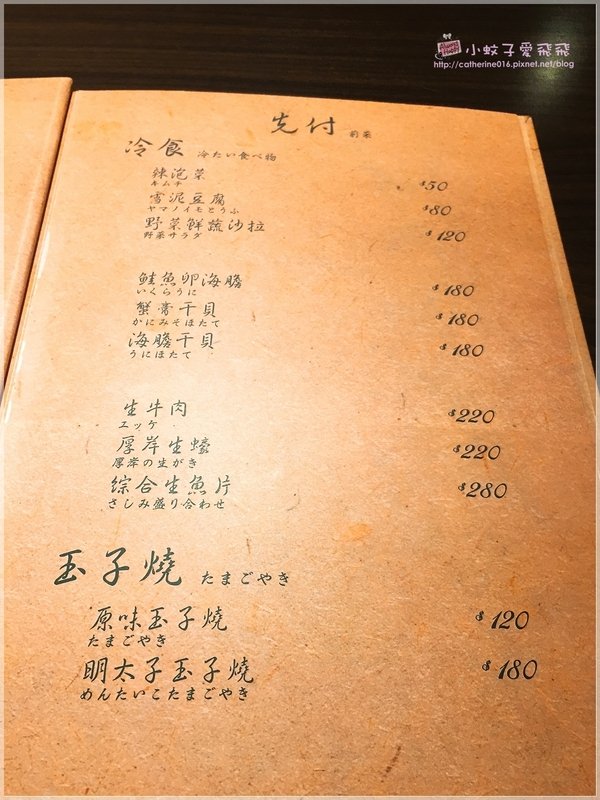 小蚊子愛飛飛
http://catherine016.pixnet.net/blog
先付 前菜
冷食 冷たい食べ物
辣泡菜 $50
キムチ
雪泥豆腐 $80
ヤマノイモとうふ
野菜鮮蔬沙拉 $120
野菜サラダ
鮭魚卵海膽 $180
いくらうに
蟹膏干貝 $180
かにみそほたて
海膽干貝 $180
うにほたて
生牛肉 $220
ユッケ
厚岸生蠔 $220
厚岸の生がき
綜合生魚片 $280
さしみ盛り合わせ
玉子燒 たまごやき
原味玉子燒 $120
たまごやき
明太子玉子燒 $180
めんたいこたまごやき